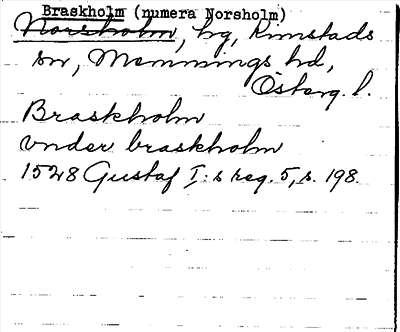 Braskholm (numera Norsholm)
Norsholm, hg, Kimstads
sn, Memmings hd,
Österg. l.
Braskholm
vnder braskholm
1528 Gustaf I:s reg. 5, s. 198.